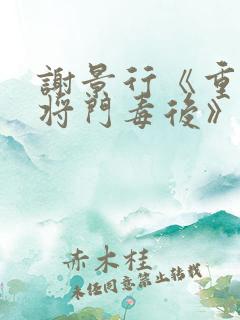 謝景行《重生
將門毒後》
赤木桂
未經同意禁止轉載